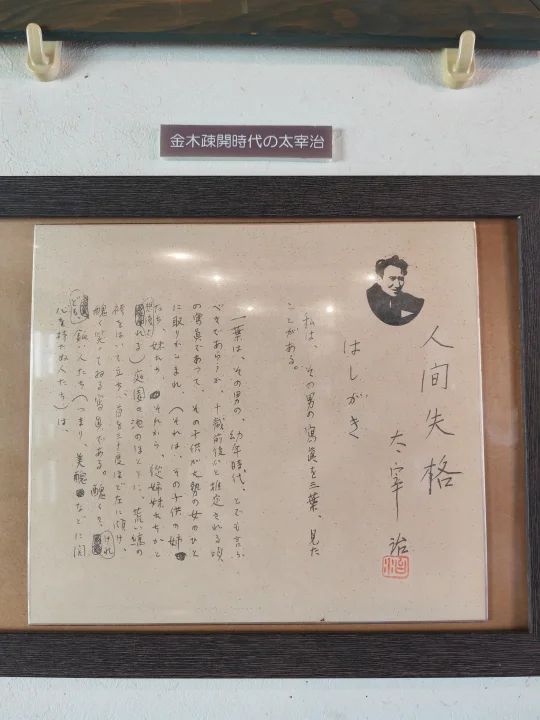 金木疎開時代の太宰治
人間失格
太宰 治
はしがき
私は、その男の寫眞を三葉、見た
ことがある。
一葉は、その男の、幼年時代、とでも言ふ
べきであらうか、十歳前後かと推定される頃
の寫眞であつて、その子供が大勢の女のひと
に取りかこまれ、(それは、その子供の姉
たち、妹たち、それから、從姉妹たちかと
想像される)庭園の池のほとりに、荒い縞の
袴をはいて立ち、首を三十度ほど左に傾け
醜く笑つてゐる寫眞である。醜く?けれ
ども、鈍い人たち(つまり、美醜などに関
心を持たぬ人たち)は、